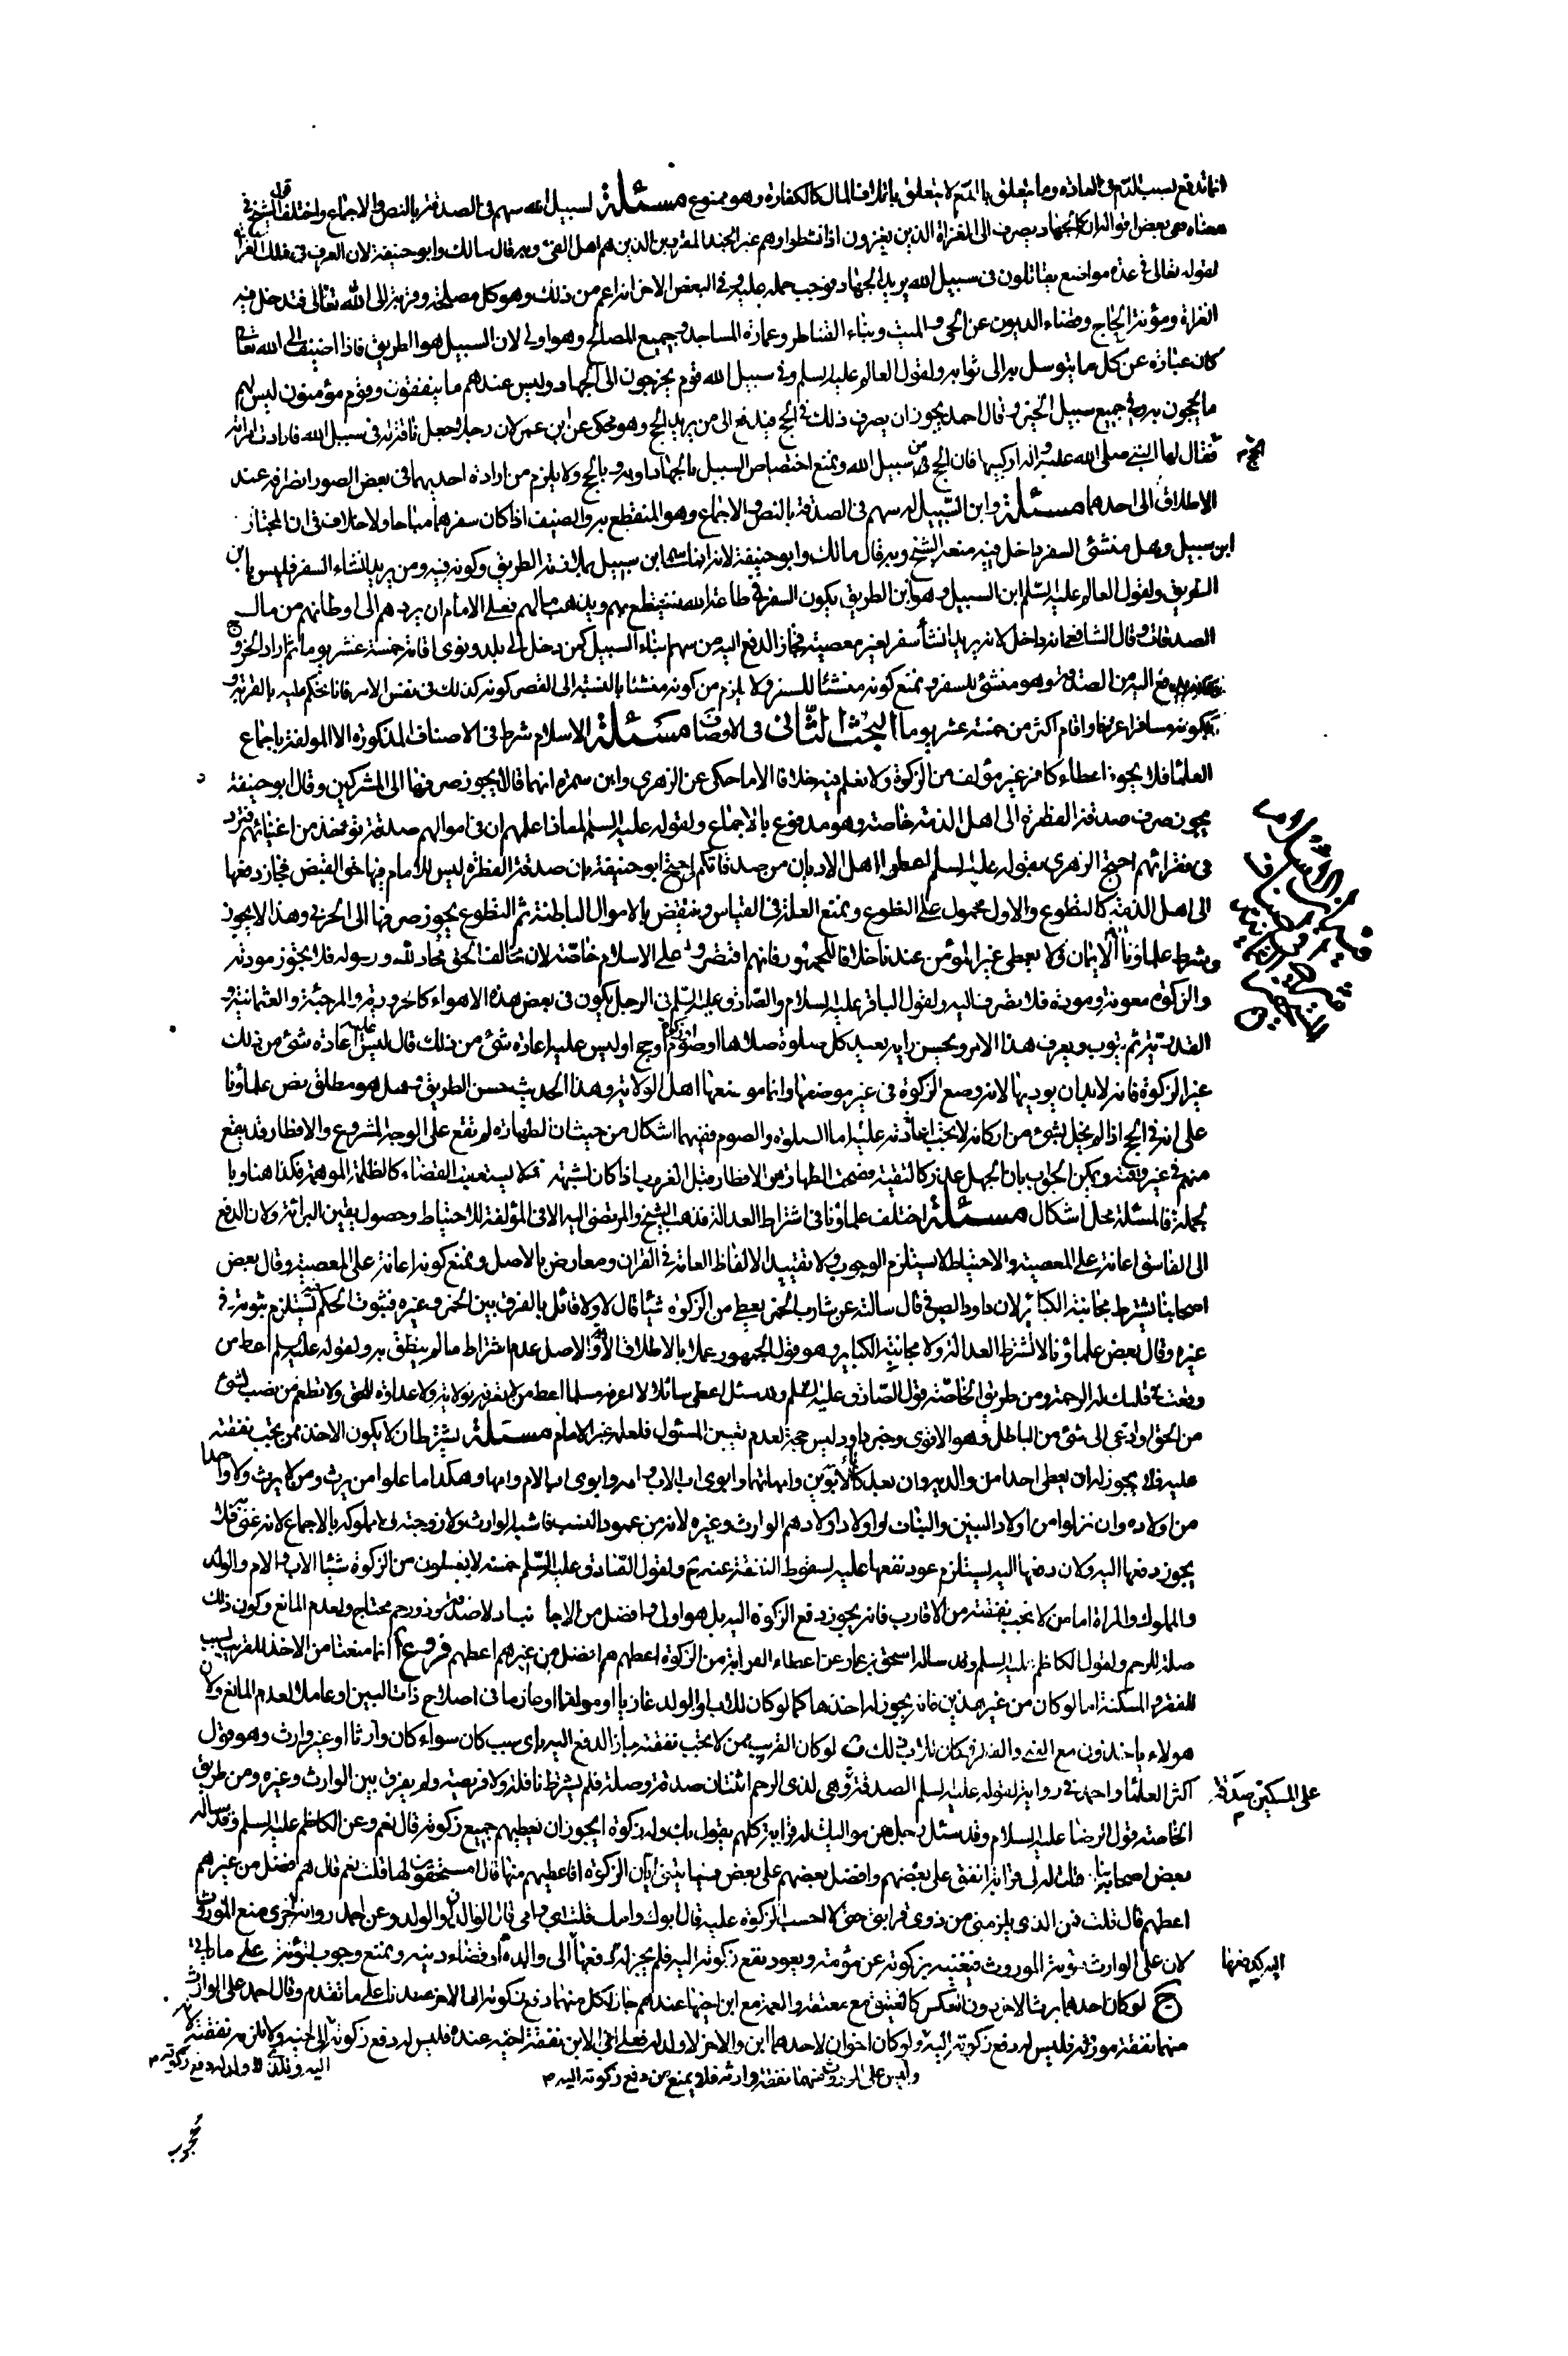 انما تدفع لسبب الدم فى العادة وما يتعلق بالدم لا يتعلق باتلاف المال كالكفارة وهو ممنوع مسئلة لسبيل الله سهم فى الصدقة بالنص والاجماع واختلف قول الشيخ فى
معناه فى بعض اقواله انه الجهاد يصرف الى الغزاة الذين يغزون اذا نشطوا وهم غير الجند المقررين الذين هم اهل الفئ وبه قال مالك وابو حنيفة لان العرف فى ذلك الغزاة
لقوله تعالى فى عدة مواضع يقاتلون فى سبيل الله يريد الجهاد فوجب حمله عليه وفى البعض الاخر انه اعم من ذلك وهو كل مصلحة وقربة الى الله تعالى فتدخل فيه
الغزاة ومؤنة الحاج وقضاء الديون عن الحى والميت وبناء القناطر وعمارة المساجد وجميع المصالح وهو اولى لان السبيل هو الطريق فاذا اضيف الى الله تعالى
كان عبارة عن كل ما يتوسل به الى ثوابه ولقول العالم عليه السلم وفى سبيل الله قوم يخرجون الى الجهاد وليس عندهم ما ينفقون وقوم مؤمنون ليس لهم
ما يحجون به وفى جميع سبيل الخير وقال احمد يجوز ان يصرف ذلك فى الحج فيدفع الى من يريد الحج وهو محكى عن ابن عمر لان رجلا جعل ناقته فى سبيل الله فارادت امراته الحج
فقال لها النبى صلى الله عليه واله اركبيها فان الحج من سبيل الله ويمنع اختصاص السبيل بالجهاد او به وبالحج ولا يلزم من ارادة احديهما فى بعض الصور انصرافه عند
الاطلاق الى احدهما مسئلة وابن السبيل له سهم فى الصدقة بالنص والاجماع وهو المنقطع به والضيف اذا كان سفرهما مباحا ولا خلاف فى ان المجتاز
ابن سبيل وهل منشئ السفر داخل فيه منعه الشيخ وبه قال مالك وابو حنيفة لانه انما سمى ابن سبيل بملازمة الطريق وكونه فيه ومن يريد انشاء السفر فليس بابن
الطريق ولقول العالم عليه السلم ابن السبيل هو ابن الطريق يكون السفر فى طاعة الله فينقطع بهم ويذهب مالهم فعلى الامام ان يردهم الى اوطانهم من مال
الصدقات وقال الشافعى انه داخل لانه يريد انشأ سفر لغير معصية فجاز الدفع اليه من سهم ابناء السبيل كمن دخل الى بلد ونوى اقامة خمسة عشر يوما ثم اراد الخروج
يدفع اليه من الصدقة وهو منشئ للسفر ويمنع كونه منشئا للسفر ولا يلزم من كونه منشئا بالنسبة الى القصر كونه كذلك فى نفس الامر فانا نحكم عليه بالغربة و
بكونه مسافرا عرفا واقام اكثر من خمسة عشر يوما البحث الثانى فى الاوصاف مسئلة الاسلام شرط فى الاصناف المذكورة الا المولفة باجماع
العلماء فلا يجوز اعطاء كافر غير مؤلف من الزكوة ولا نعلم فيه خلافا الا ما حكى عن الزهرى وابن سمرة انهما قالا يجوز صرفها الى المشركين وقال ابو حنيفة
يجوز صرف صدقة الفطرة الى اهل الذمة خاصة وهو مدفوع بالاجماع ولقوله عليه السلم لمعاذ اعلمهم ان فى اموالهم صدقة تؤخذ من اغنيائهم فترد
فى فقرائهم احتج الزهرى بقوله عليه السلم اعطوا اهل الاديان من صدقاتكم احتج ابو حنيفة بان صدقة الفطرة ليس للامام فيها حق القبض فجاز دفعها
الى اهل الذمة كالتطوع والاول محمول على التطوع ويمنع العلة فى القياس وينتقض بالاموال الباطنة ثم التطوع يجوز صرفها الى الحربى وهذا لا يجوز
وشرط علماؤنا الايمان فلا يعطى غير المؤمن عندنا خلافا للجمهور فانهم اقتصروا على الاسلام خاصة لان مخالف الحق محاد لله ورسوله فلا يجوز مودته
والزكوة معونة ومودة فلا تصرف اليه ولقول الباقر عليه السلام والصادق عليه السلم فى الرجل يكون فى بعض هذه الاهواء كالحرورية والمرجئة والعثمانية و
القدرية ثم يتوب ويعرف هذا الامر ويحسن رايه يعيد كل صلوة صلاها او صوم او زكوة او حج او ليس عليه اعادة شئ من ذلك قال ليس عليه اعادة شئ من ذلك
غير الزكوة فانه لابد ان يوديها لانه وضع الزكوة فى غير موضعها وانما موضعها اهل الولاية وهذا الحديث حسن الطريق وهل هو مطلق نص علماؤنا
على انه فى الحج اذا لم يخل بشئ من اركانه لا يجب اعادته عليه اما الصلوة والصوم ففيهما اشكال من حيث ان الطهارة لم تقع على الوجه المشروع والافطار قد يقع
منهم فى غير وقته ويمكن الجواب بان الجهل عذر كالتقية فصحت الطهارة والافطار قبل الغروب اذا كان لشبهة قد لا يستعقب القضاء كالظلمة الموهمة فكذا هنا وبا
لجملة فالمسئلة محل اشكال مسئلة اختلف علماؤنا فى اشتراط العدالة فذهب الشيخ والمرتضى اليه الا فى المؤلفة للاحتياط وحصول يقين البرائة ولان الدفع
الى الفاسق اعانة على المعصية والاحتياط لا يستلزم الوجوب ولا تقييد الالفاظ العامة فى القران ومعارض بالاصل ويمنع كونه اعانة على المعصية وقال بعض
اصحابنا يشترط مجانبة الكبائر لان داود الصرمى قال سالته عن شارب الخمر يعطى من الزكوة شيئا قال لا ولا قائل بالفرق بين الخمر وغيره فثبوت الحكم فيه يستلزم ثبوته فى
غيره وقال بعض علماؤنا لا تشترط العدالة ولا مجانبة الكبائر وهو قول الجمهور عملا بالاطلاق والاصل عدم اشتراط ما لم ينطق به ولقوله عليه السلم اعط من
وقعت فى قلبك له الرحمة ومن طريق الخاصة قول الصادق عليه السلم وقد سئل اعطى سائلا لا اعرفه مسلما اعط من لا تعرفه بولاية ولا عداوة للحق ولا تطعم من نصب لشئ
من الحق او دعى الى شئ من الباطل وهو الاقوى وخبر داود ليس حجة لعدم تعيين المسئول فلعله غير الامام مسئلة يشترط ان لا يكون الاخذ ممن يجب نفقته
عليه فلا يجوز له ان يعطى احدا من والديه وان بعد كابوى الابوين وامهاتهما وابوى اب الاب وامه وابوى اب الام وامها وهكذا ما علوا من يرث ومن لا يرث ولا واحدا
من اولاده وان نزلوا من اولاد البنين والبنات او اولاد اولادهم الوارث وغيره لانه من عمود النسب فاشبه الوارث ولا زوجته ولا مملوكه بالاجماع لانه غنى به فلا
يجوز دفعها اليه ولان دفعها اليه يستلزم عود نفعها عليه لسقوط النفقة عنه ح ولقول الصادق عليه السلم خمسة لا يعطون من الزكوة شيئا الاب والام والولد
والمملوك والمراة اما من لا تجب نفقته من الاقارب فانه يجوز دفع الزكوة اليه بل هو اولى وافضل من الاجانب اذ لا صدقة وذو رحم محتاج ولعدم المانع وكون ذلك
صلة للرحم ولقول الكاظم عليه السلم وقد ساله اسحق بن عمار عن اعطاء القرابة من الزكوة اعطهم هم افضل من غيرهم اعطهم فروع ا انما منعنا من الاخذ للقريب بسبب
الفقر والمسكنة اما لو كان من غير هذين فانه يجوز له اخذها كما لو كان للاب او الولد غازيا او مولفا او غارما فى اصلاح ذات البين او عاملا لعدم المانع ولان
هولاء ياخذون مع الغنى والفقر فكان للاب ذلك ب لو كان القريب ممن لا يجب نفقته جاز الدفع اليه باى سبب كان سواء كان وارثا او غير وارث وهو قول
اكثر العلماء واحمد فى رواية لقوله عليه السلم الصدقة على المسكين صدقة وهى لذى الرحم اثنتان صدقة وصلة فلم يشترط نافلة ولا فريضة ولم يفرق بين الوارث وغيره ومن طريق
الخاصة قول الرضا عليه السلام وقد سئل رجل من مواليك له قرابة كلهم يقول بك وله زكوة ايجوز ان يعطيهم جميع زكوته قال نعم وعن الكاظم عليه السلم وقد ساله
بعض اصحابنا قلت له لى قرابة انفق على بعضهم وافضل بعضهم على بعض فياتينى ابان الزكوة افاعطيهم منها قال مستحقون لها قلت نعم قال هم افضل من غيرهم
اعطهم قال قلت فمن الذى يلزمنى من ذوى قرابتى حتى لا احسب الزكوة عليه قال ابوك وامك قلت ابى وامى قال الوالدان والولد وعن احمد رواية اخرى منع الموروث
لان على الوارث مؤنة الموروث فيغنيه بزكوته عن مؤنته ويعود نفع زكوته اليه فلم يجز له دفعها اليه كدفعها الى والده او قضاء دينه ويمنع وجوب المؤنة على ما ياتى
ج لو كان احدهما يرث الاخر دون العكس كالعتيق مع معتقه والعمة مع ابن اخيها عندهم جاز لكل منهما دفع زكوته الى الاخر عندنا على ما تقدم وقال احمد على الوارث
منهما نفقة مورثه فليس له دفع زكوته اليه وليس على الموروث منهما نفقة وارثه فلا يمنع من دفع زكوته اليه ولو كان اخوان لاحدهما ابن والاخر لا ولد له فعلى ابى الابن نفقة اخيه عنده فليس له دفع زكوته الى اخيه وللذى لا ولد له دفع زكوته اليه ولا يلزمه نفقته لانه
محجوب